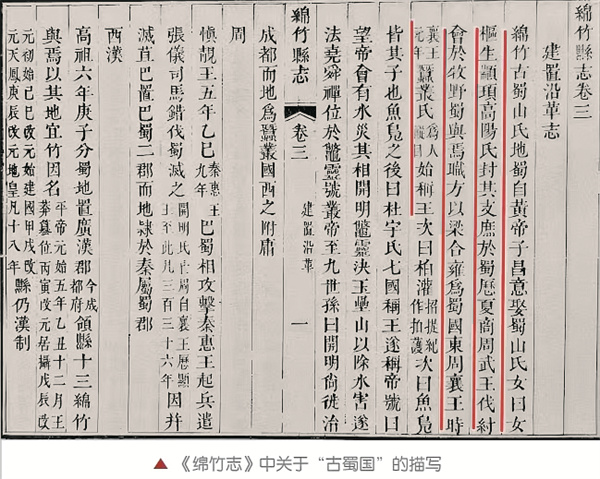 綿竹縣志卷三
建置沿革志
綿竹古蜀山氏地蜀自黃帝子昌意娶蜀山氏女曰女
樞生顓頊高陽氏封其支庶於蜀歷夏商周武王伐紂
會於牧野蜀與焉職方以梁合雍爲蜀國東周襄王時
襄王元年蠶叢氏爲人縱目始稱王次曰柏濩招提紀作拍護次曰魚鳧
皆其子也魚鳧之後曰杜宇氏七國稱王遂稱帝號曰
望帝會有水災其相開明鼈靈決玉壘山以除水害遂
法堯舜禪位於鼈靈號叢帝至九世孫曰開明尚徙治
綿竹縣志
卷三
建置沿革
一
成都而地爲蠶叢國西之附庸
周
慎靚王五年乙巳秦惠王九年巴蜀相攻擊秦惠王起兵遣
張儀司馬錯伐蜀滅之開明氏世周自襄王歷顯王至此凡三百三十六年因幷
滅苴巴置巴蜀二郡而地隸於秦屬蜀郡
西漢
高祖六年庚子分蜀地置廣漢郡今成都府領縣十三綿竹
與焉以其地宜竹因名平帝元始五年乙丑十二月王莽纂位丙寅改元居攝戊辰改
元初始己巳改元始建國甲戌改元天鳳庚辰改元地皇凡十八年縣仍漢制
▲《绵竹志》中关于“古蜀国”的描写